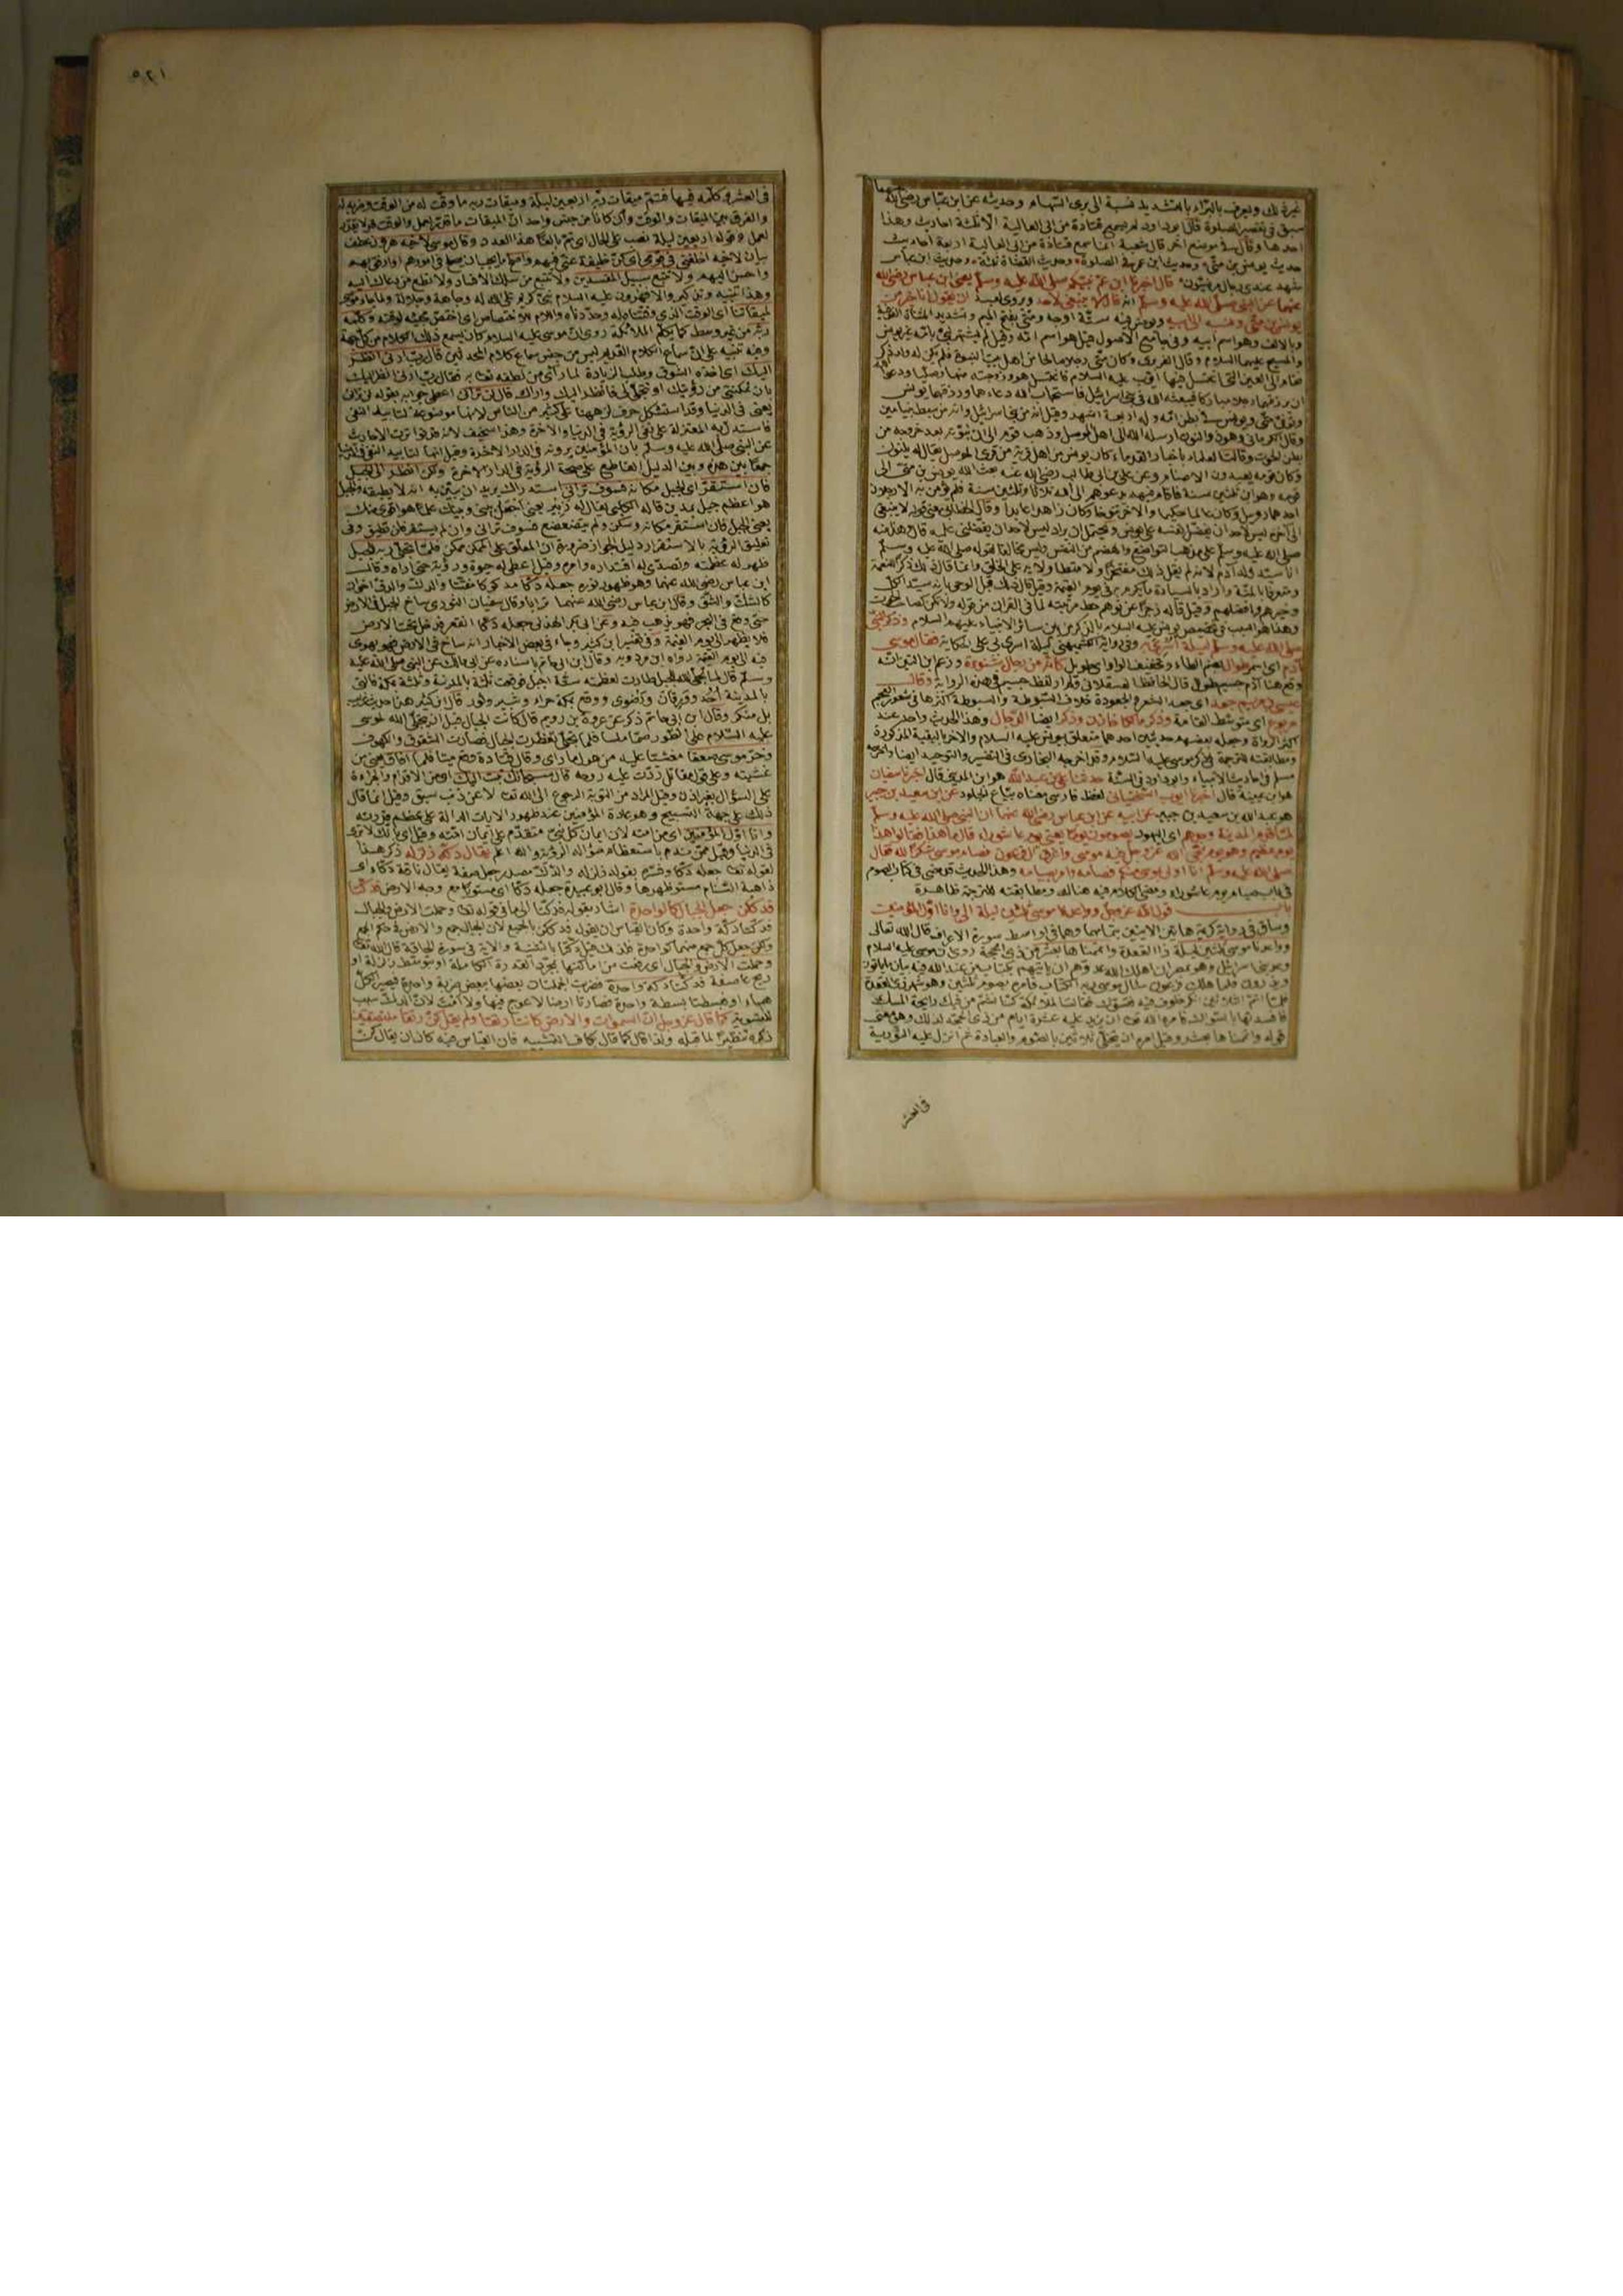 غير ذلك ويعرف بالبراء بالتشديد نسبة الى برى السهام وحديثه عن ابن عباس رضي الله عنهما
سبق في تقصير الصلوة قال ابو داود لم يسمع قتادة من ابي العالية الا ثلثة احاديث وهذا
احدها وقال في موضع آخر قال شعبة انما سمع قتادة من ابي العالية اربعة احاديث
حديث يونس بن متى وحديث ابن عمر في الصلوة وحديث القضاة ثلثة وحديث ابن عباس
شهد عندي رجال مرضيون قال اخبرنا ابن عم نبيكم صلى الله عليه وسلم يعني ابن عباس رضي الله
عنهما عن النبي صلى الله عليه وسلم انه قال لا ينبغي لاحد ويروى لعبد ان يقول انا خير من
يونس بن متى ونسبه الى ابيه ويونس فيه ستة اوجه ومتى بفتح الميم وتشديد المثناة الفوقية
وبالالف وهو اسم ابيه وفي جامع الاصول قيل هو اسم امه وقيل لم يشتهر نبي بامه غير يونس
والمسيح عليهما السلام وقال الفربري وكان متى رجلا صالحا من اهل بيت النبوة فلم يكن له ولد ذكر
فقام الى العين التي اغتسل فيها ايوب عليه السلام فاغتسل هو وزوجته منها وصليا ودعوا الله
ان يرزقهما رجلا مباركا فيبعثه الله في بني اسرائيل فاستجاب الله دعاءهما ورزقهما يونس
وتوفى متى ويونس في بطن امه وله اربعة اشهر وقيل انه من بني اسرائيل وانه من سبط بنيامين
وقال الكرماني وهو ذو النون ارسله الله الى اهل الموصل وذهب قوم الى ان نبوته بعد خروجه من
بطن الحوت وقالت العلماء باخبار القدماء كان يونس من اهل قرية من قرى الموصل يقال له نينوى
وكان قومه يعبدون الاصنام وعن علي بن ابي طالب رضي الله عنه بعث الله يونس بن متى الى
قومه وهو ابن ثلثين سنة فاقام فيهم يدعوهم الى الله ثلاثا وثلثين سنة فلم يؤمن به الا رجلان
احدهما روبيل وكان عالما حكيما والآخر تنوخا وكان زاهدا عابدا وقال الخطابي معنى قوله لا ينبغي
الى آخره ليس لاحد ان يفضل نفسه على يونس ويحتمل ان يراد ليس لاحد ان يفضلني عليه قال وهذا منه
صلى الله عليه وسلم على مذهب التواضع والهضم من النفس وليس مخالفا لقوله صلى الله عليه وسلم
انا سيد ولد آدم لانه لم يقل ذلك مفتخرا ولا متطاولا به على الخلق وانما قال ذلك ذكرا للنعمة
ومعترفا بالمنة واراد بالسيادة ما يكرم به في يوم القيمة وقيل قال ذلك قبل الوحي بانه سيد الكل
وخيرهم وافضلهم وقيل قاله زجرا عن توهم حط مرتبته لما في القرآن من قوله ولا تكن كصاحب الحوت
وهذا هو السبب في تخصيص يونس عليه السلام بالذكر من بين سائر الانبياء عليهم السلام وذكر النبي
صلى الله عليه وسلم ليلة اسري به وفي رواية الكشميهني ليلة اسرى بي على الحكاية فقال موسى
آدم اى اسمر طوال بضم الطاء وتخفيف الواو اى طويل كأنه من رجال شنوءة وزعم ابن التين انه
وقع هنا آدم جسيم طوال قال الحافظ العسقلاني ولم ار لفظ جسيم في هذه الرواية وقال
عيسى بن مريم جعد اى جعد الشعر والجعودة خلاف السبوطة والسبوطة اكثرها في شعور العجم
مربوع اى متوسط القامة وذكر مالكا خازن وذكر ايضا الدجال وهذا الحديث واحد عند
اكثر الرواة وجعله بعضهم حديثين احدهما متعلق بيونس عليه السلام والآخر بالبقية المذكورة
ومطابقته للترجمة في ذكر موسى عليه السلام وقد اخرجه البخاري في التفسير والتوحيد ايضا واخرجه
مسلم في احاديث الانبياء وابو داود في السنة حدثنا علي بن عبد الله هو ابن المديني قال اخبرنا سفيان
هو ابن عيينة قال اخبرنا ايوب السختياني لفظ فارسي معناه بياع الجلود عن ابن سعيد بن جبير
هو عبد الله بن سعيد بن جبير عن ابيه عن ابن عباس رضي الله عنهما ان النبي صلى الله عليه وسلم
لما قدم المدينة وجدهم اى اليهود يصومون يوما يعني يوم عاشوراء قال ما هذا فقالوا هذا
يوم عظيم وهو يوم نجى الله عز وجل فيه موسى واغرق آل فرعون فصام موسى شكرا لله فقال
صلى الله عليه وسلم انا اولى بموسى منهم فصامه وامر بصيامه وهذا الحديث قد مضى في كتاب الصوم
في باب صيام يوم عاشوراء ومضى الكلام فيه هنالك ومطابقته للترجمة ظاهرة
باب قول الله عز وجل وواعدنا موسى ثلثين ليلة الى وانا اول المؤمنين
وساق في رواية كريمة هاتين الآيتين بتمامهما وهما في اواسط سورة الاعراف قال الله تعالى
وواعدنا موسى ثلثين ليلة ذا القعدة واتممناها بعشر من ذي الحجة روى ان موسى عليه السلام
وعد بني اسرائيل وهو بمصر ان اهلك الله عدوهم ان يأتيهم بكتاب من عند الله فيه بيان ما يأتون
وما يذرون فلما هلك فرعون سأل موسى ربه الكتاب فامره بصوم ثلثين وهو شهر ذي القعدة
فلما اتم الثلاثين انكر خلوف فيه فتسوك فقالت الملائكة كنا نشم من فيك رايحة المسك
فافسدتها بالسواك فامره الله تعالى ان يزيد عليه عشرة ايام من ذي الحجة لذلك وهو معنى
قوله واتممناها بعشر وقيل امره ان يتخلى ثلاثين بالصوم والعبادة ثم انزل عليه التورية
في العشر
٥٢١
في العشر وكلمه فيها فتم ميقات ربه اربعين ليلة وميقات ربه ما وقت له من الوقت وضربه له
والفرق بين الميقات والوقت وان كانا من جنس واحد ان الميقات ما قدر لعمل والوقت قد لا يقدر
لعمل وقوله اربعين ليلة نصب على الحال اى تم بالغا هذا العدد وقال موسى لاخيه هرون عطف
بيان لاخيه اخلفني في قومي اى كن خليفة عني فيهم واصلح ما يجب ان يصلح في امورهم او ارفق بهم
واحسن اليهم ولا تتبع سبيل المفسدين ولا تتبع من سلك الافساد ولا تطع من دعاك اليه
وهذا تنبيه وتذكير والا فهرون عليه السلام نبي كريم على الله له وجاهة وجلالة ولما جاء موسى
لميقاتنا اى الوقت الذي وقتناه له وحددناه واللام للاختصاص اى اختص مجيئه لوقته وكلمه
ربه من غير وسط كما يكلم الملائكة روى ان موسى عليه السلام كان يسمع ذلك الكلام من كل جهة
وفيه تنبيه على ان سماع الكلام القديم ليس من جنس سماع كلام المحدثين قال رب ارني انظر
اليك اى اخذه الشوق وطلب الزيادة لما رأى من لطفه تعالى به فقال رب ارني انظر اليك
بان تمكنني من رؤيتك او تتجلى لي فانظر اليك واراك قال لن تراني اعطى جوابه بقوله لن تراني
يعني في الدنيا وقد استشكل حرف لن ههنا على كثير من الناس لانها موضوعة لتأبيد النفي
فاستدل به المعتزلة على نفي الرؤية في الدنيا والآخرة وهذا سخيف لانه قد تواترت الاحاديث
عن النبي صلى الله عليه وسلم بان المؤمنين يرونه في الدار الآخرة وقيل انها لتأبيد النفي في الدنيا
جمعا بين هذه وبين الدليل القاطع على صحة الرؤية في الدار الآخرة ولكن انظر الى الجبل
فان استقر اى الجبل مكانه فسوف تراني استدراك يريد ان يبين به انه لا يطيقه والجبل
هو اعظم جبل بمدين قاله الكلبي يقال له زبير يعني اجعل بيني وبينك علما هو اقوى منك
يعني الجبل فان استقر مكانه وسكن ولم يتضعضع فسوف تراني وان لم يستقر فلن تطيق وفي
تعليق الرؤية بالاستقرار دليل الجواز ضرورة ان المعلق على الممكن ممكن فلما تجلى ربه للجبل
ظهر له عظمته وتصدى له اقتداره وامره وقيل اعطى له حيوة ورؤية حتى رآه وقال
ابن عباس رضي الله عنهما وهو ظهور نوره جعله دكا مدكوكا مفتتا والدك والدق اخوان
كالشك والشق وقال ابن عباس رضي الله عنهما ترابا وقال سفيان الثوري ساخ الجبل في الارض
حتى وقع في البحر فهو يذهب فيه وعن ابي بكر الهذلي جعله دكا انقعر فدخل تحت الارض
فلا يظهر الى يوم القيمة وفي تفسير ابن كثير وجاء في بعض الاخبار انه ساخ في الارض فهو يهوي
فيه الى يوم القيمة رواه ابن مردويه وقال ابن ابي حاتم باسناده عن انس بن مالك عن النبي صلى الله عليه
وسلم قال لما تجلى الله للجبل طارت لعظمته ستة اجبل فوقعت ثلثة بالمدينة وثلثة بمكة فالتي
بالمدينة احد وورقان ورضوى ووقع بمكة حراء وثبير وثور قال ابن كثير هذا حديث غريب
بل منكر وقال ابن ابي حاتم ذكر عن عروة بن رويم قال كانت الجبال قبل ان يتجلى الله لموسى
عليه السلام على الطور صما ملسا فلما تجلى تفطرت الجبال فصارت الشقوق والكهوف
وخر موسى صعقا مغشيا عليه من هول ما رأى وقال قتادة وقع ميتا فلما افاق يعني من
غشيته وعلى قول مقاتل ردت عليه روحه قال سبحانك تبت اليك اى من الاقدام والجراءة
على السؤال بغير اذن وقيل المراد من التوبة الرجوع الى الله تعالى لا عن ذنب سبق وقيل انما قال
ذلك على جهة التسبيح وهو عادة المؤمنين عند ظهور الآيات الدالة على عظم قدرته
وانا اول المؤمنين اى من امته لان ايمان كل نبي متقدم على ايمان امته وقيل اى بانك لا ترى
في الدنيا وقيل ممن تقدم باستعظام سؤاله الرؤية والله اعلم يقال دكه زلزله ذكر هذا
لقوله تعالى جعله دكا وفسره بقوله زلزله والدك مصدر جعل صفة يقال ناقة دكاء اى
ذاهبة السنام مستو ظهرها وقال ابو عبيدة جعله دكا اى مستويا مع وجه الارض فدكتا
فدككن جعل الجبال كالواحدة اشار بقوله فدكتا الى ما في قوله تعالى وحملت الارض والجبال
فدكتا دكة واحدة وكان القياس ان يقول فدككن بالجمع لان الجبال جمع والارض في حكم الجمع
ولكن جعل كل جمع منهما كواحدة فلذلك قيل دكتا بالتثنية والآية في سورة الحاقة قال الله تعالى
وحملت الارض والجبال اى رفعت من اماكنها بمجرد القدرة الكاملة او بتوسط زلزلة او
ريح عاصفة فدكتا دكة واحدة فضربت الجملتان بعضها ببعض ضربة واحدة فيصير الكل
هباء او فبسطتا بسطة واحدة فصارتا ارضا لا عوج فيها ولا امتا لان الدك سبب
للتسوية كما قال عز وجل ان السموات والارض كانتا رتقا ولم يقل كن رتقا ملتصقتين
ذكره تنظيرا لما قبله ولذا قال كما قال بكاف التشبيه فان القياس فيه كان ان يقال كن